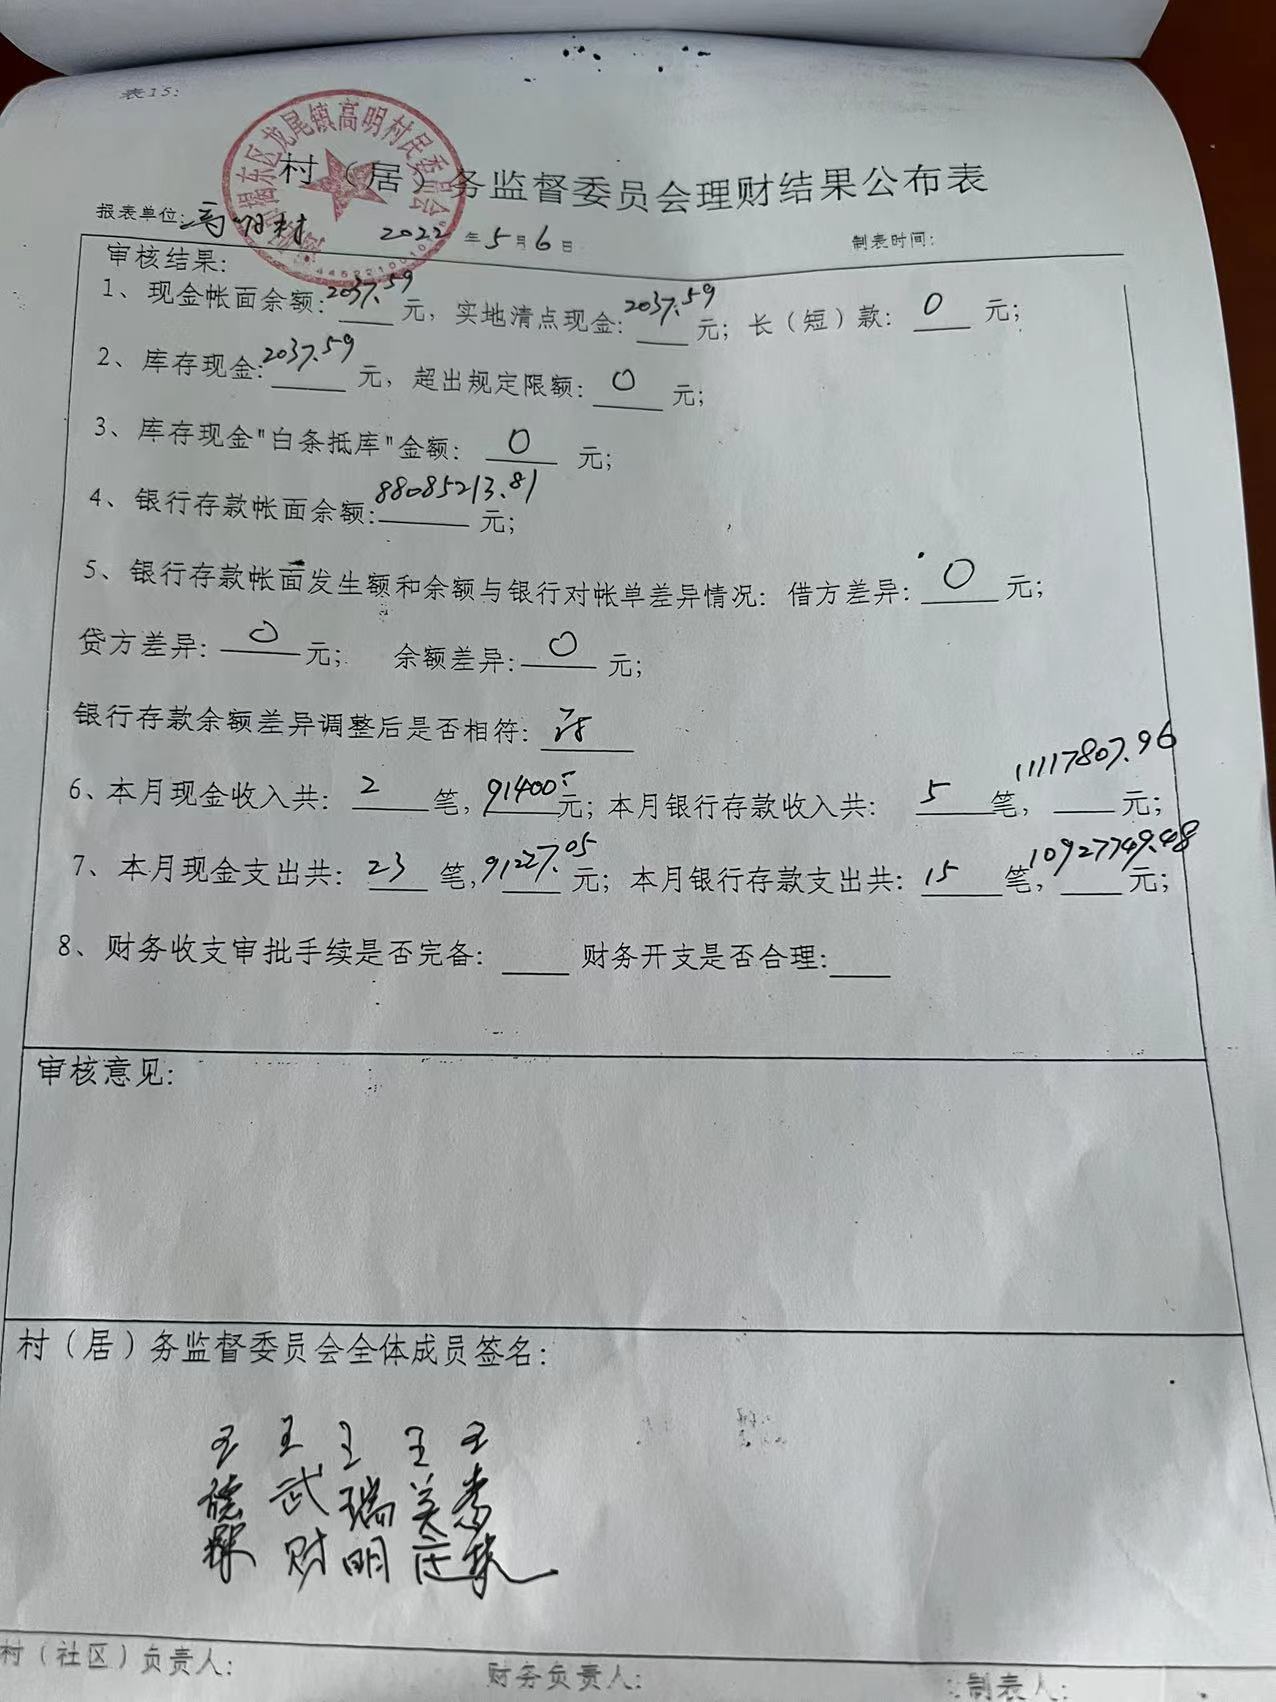 表15:
村（居）务监督委员会理财结果公布表
揭东区龙尾镇高明村民委员会
报表单位:高明村 2022年5月6日 制表时间:
审核结果:
1、现金帐面余额:2037.59元，实地清点现金:2037.59元；长（短）款:0元；
2、库存现金:2037.59元，超出规定限额:0元；
3、库存现金"白条抵库"金额:0元；
4、银行存款帐面余额:88085213.81元；
5、银行存款帐面发生额和余额与银行对帐单差异情况：借方差异:0元；
贷方差异:0元； 余额差异:0元；
银行存款余额差异调整后是否相符:
6、本月现金收入共:2笔,91400元；本月银行存款收入共:5笔,11117807.96元；
7、本月现金支出共:23笔,91227.05元；本月银行存款支出共:15笔,10927749.48元；
8、财务收支审批手续是否完备: 财务开支是否合理:
审核意见:
村（居）务监督委员会全体成员签名:
王德 王武财 王瑞明 王美庄 王
村（社区）负责人: 财务负责人: 制表人: